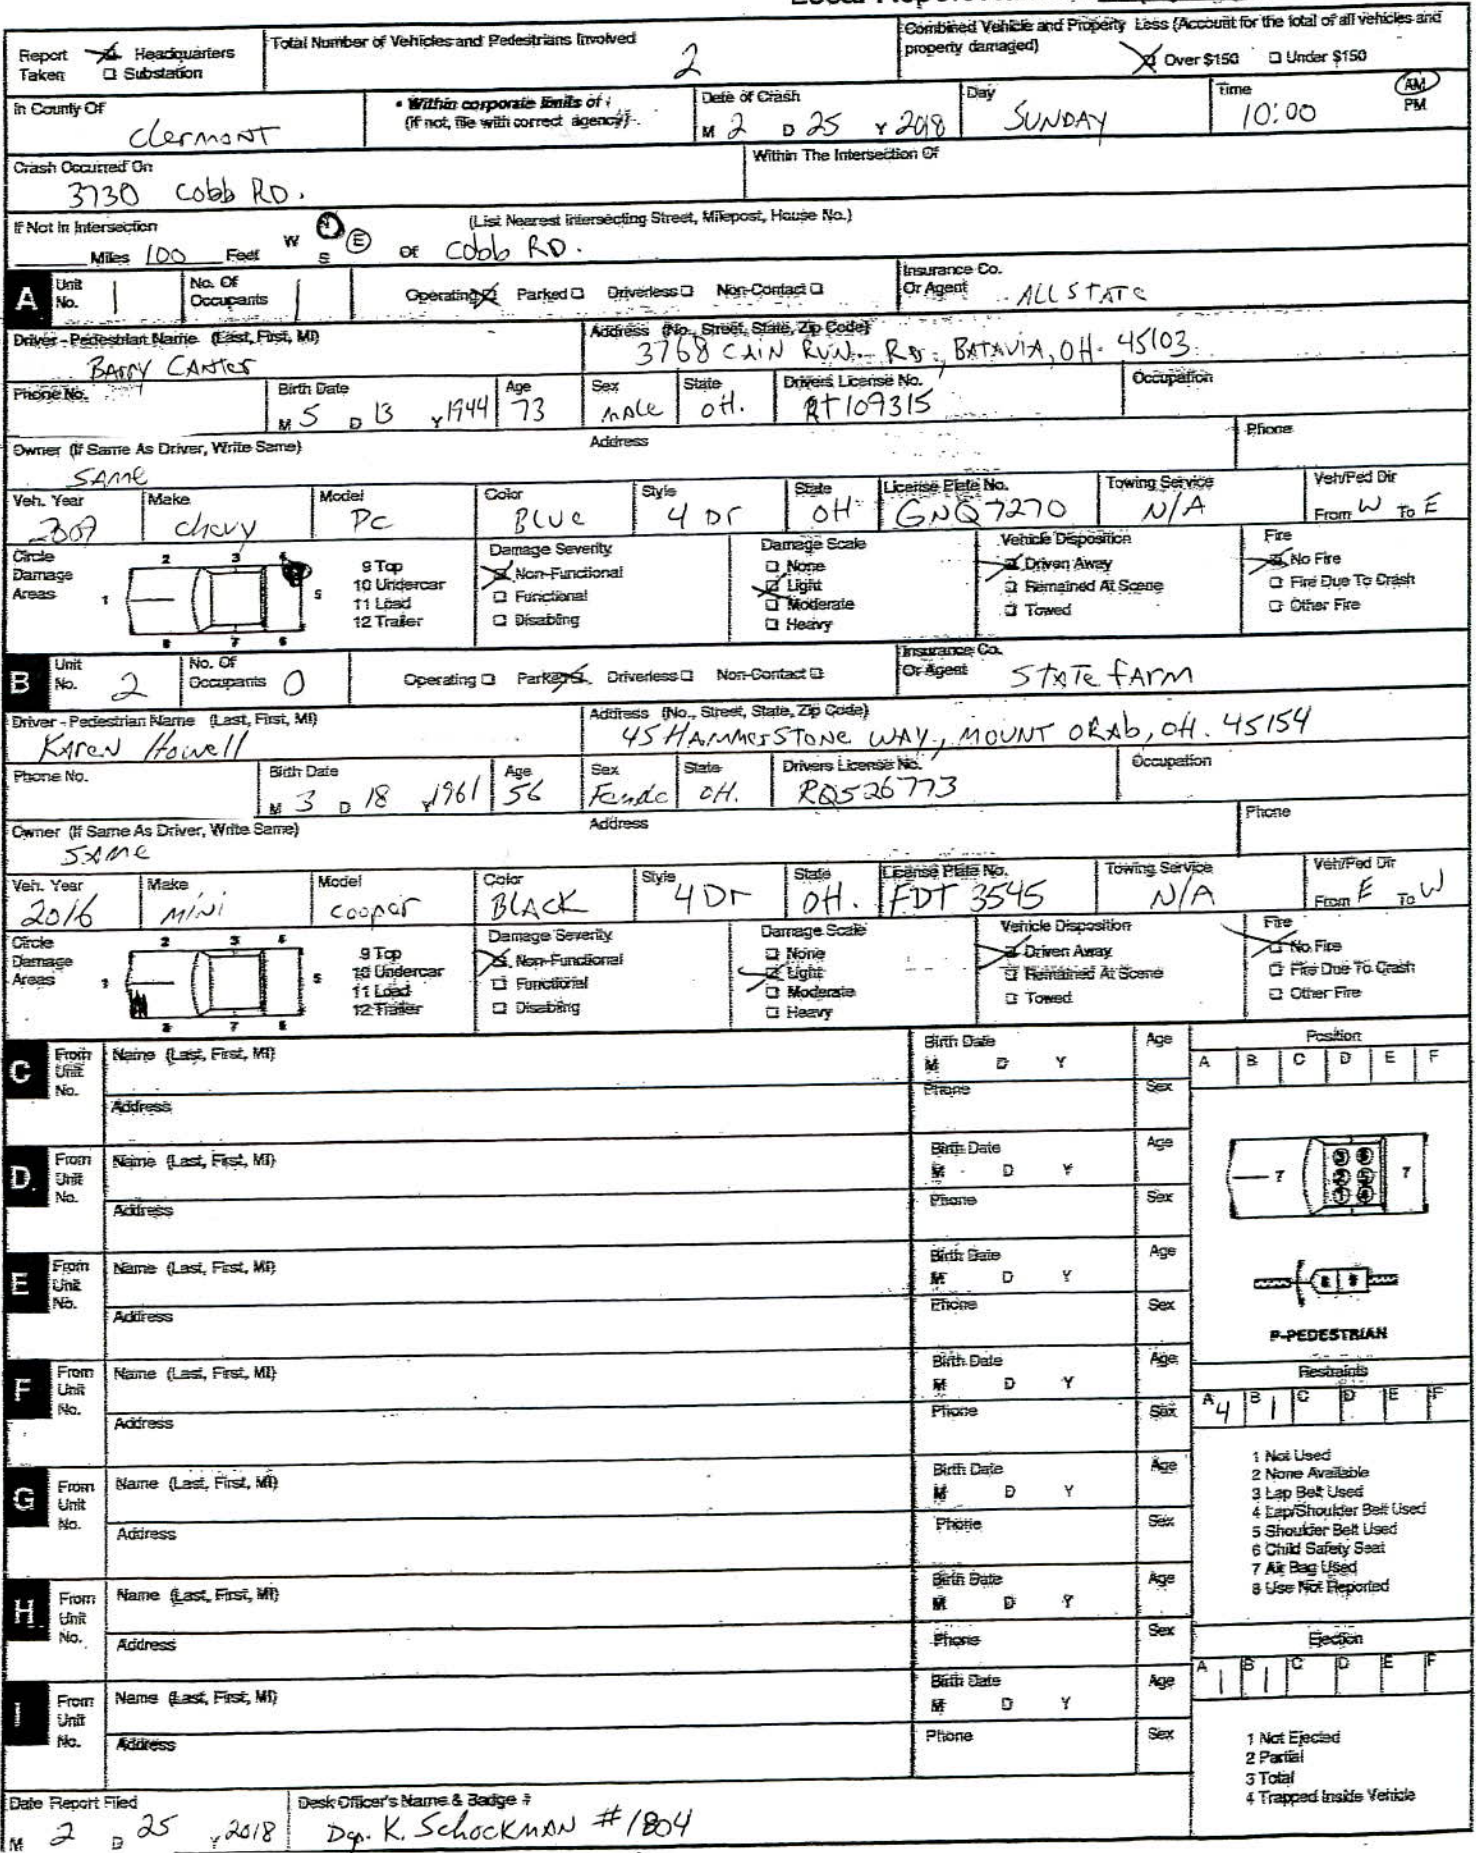 Report Taken ☒ Headquarters ☐ Substation
Total Number of Vehicles and Pedestrians Involved 2
Combined Vehicle and Property Loss (Account for the total of all vehicles and property damaged) ☒ Over $150 ☐ Under $150
In County Of Clermont
• Within corporate limits of : (If not, file with correct agency)
Date of Crash M 2 D 25 Y 2018
Day SUNDAY
Time 10:00 AM PM
Crash Occurred On 3730 Cobb RD.
Within The Intersection Of
If Not In Intersection (List Nearest Intersecting Street, Milepost, House No.)
Miles 100 Feet W N S E Of Cobb RD.
A Unit No. 1 No. Of Occupants 1 Operating ☒ Parked ☐ Driverless ☐ Non-Contact ☐ Insurance Co. Or Agent ALLSTATE
Driver - Pedestrian Name (Last, First, MI) BARRY CANTER
Address (No., Street, State, Zip Code) 3768 CAIN RUN RD, BATAVIA, OH. 45103
Phone No. Birth Date M 5 D 13 Y 1944 Age 73 Sex MALE State OH. Drivers License No. RT109315 Occupation
Owner (If Same As Driver, Write Same) SAME Address Phone
Veh. Year 2007 Make Chevy Model PC Color BLUE Style 4 DR State OH License Plate No. GNQ7270 Towing Service N/A Veh/Ped Dir From W To E
Circle Damage Areas 1 2 3 4 5 6 7 8
9 Top
10 Undercar
11 Load
12 Trailer
Damage Severity ☒ Non-Functional ☐ Functional ☐ Disabling
Damage Scale ☐ None ☒ Light ☐ Moderate ☐ Heavy
Vehicle Disposition ☒ Driven Away ☐ Remained At Scene ☐ Towed
Fire ☒ No Fire ☐ Fire Due To Crash ☐ Other Fire
B Unit No. 2 No. Of Occupants 0 Operating ☐ Parked ☒ Driverless ☐ Non-Contact ☐ Insurance Co. Or Agent STATE FARM
Driver - Pedestrian Name (Last, First, MI) KAREN Howell
Address (No., Street, State, Zip Code) 45 HAMMERSTONE WAY, MOUNT ORAB, OH. 45154
Phone No. Birth Date M 3 D 18 Y 1961 Age 56 Sex Female State OH. Drivers License No. RQ526773 Occupation
Owner (If Same As Driver, Write Same) SAME Address Phone
Veh. Year 2016 Make MINI Model cooper Color BLACK Style 4 DR State OH. License Plate No. FDT 3545 Towing Service N/A Veh/Ped Dir From E To W
Circle Damage Areas 1 2 3 4 5 6 7 8
9 Top
10 Undercar
11 Load
12 Trailer
Damage Severity ☒ Non-Functional ☐ Functional ☐ Disabling
Damage Scale ☐ None ☒ Light ☐ Moderate ☐ Heavy
Vehicle Disposition ☒ Driven Away ☐ Remained At Scene ☐ Towed
Fire ☒ No Fire ☐ Fire Due To Crash ☐ Other Fire
C From Unit No. Name (Last, First, MI) Birth Date M D Y Age
Address Phone Sex
Position A B C D E F
D From Unit No. Name (Last, First, MI) Birth Date M D Y Age
Address Phone Sex
7 7
E From Unit No. Name (Last, First, MI) Birth Date M D Y Age
Address Phone Sex
P-PEDESTRIAN
F From Unit No. Name (Last, First, MI) Birth Date M D Y Age
Address Phone Sex
Restraints A 4 B 1 C D E F
1 Not Used
2 None Available
3 Lap Belt Used
4 Lap/Shoulder Belt Used
5 Shoulder Belt Used
6 Child Safety Seat
7 Air Bag Used
8 Use Not Reported
G From Unit No. Name (Last, First, MI) Birth Date M D Y Age
Address Phone Sex
H From Unit No. Name (Last, First, MI) Birth Date M D Y Age
Address Phone Sex
Ejection A 1 B 1 C D E F
I From Unit No. Name (Last, First, MI) Birth Date M D Y Age
Address Phone Sex
1 Not Ejected
2 Partial
3 Total
4 Trapped Inside Vehicle
Date Report Filed M 2 D 25 Y 2018
Desk Officer's Name & Badge # Dep. K. SCHOCKMAN #1804